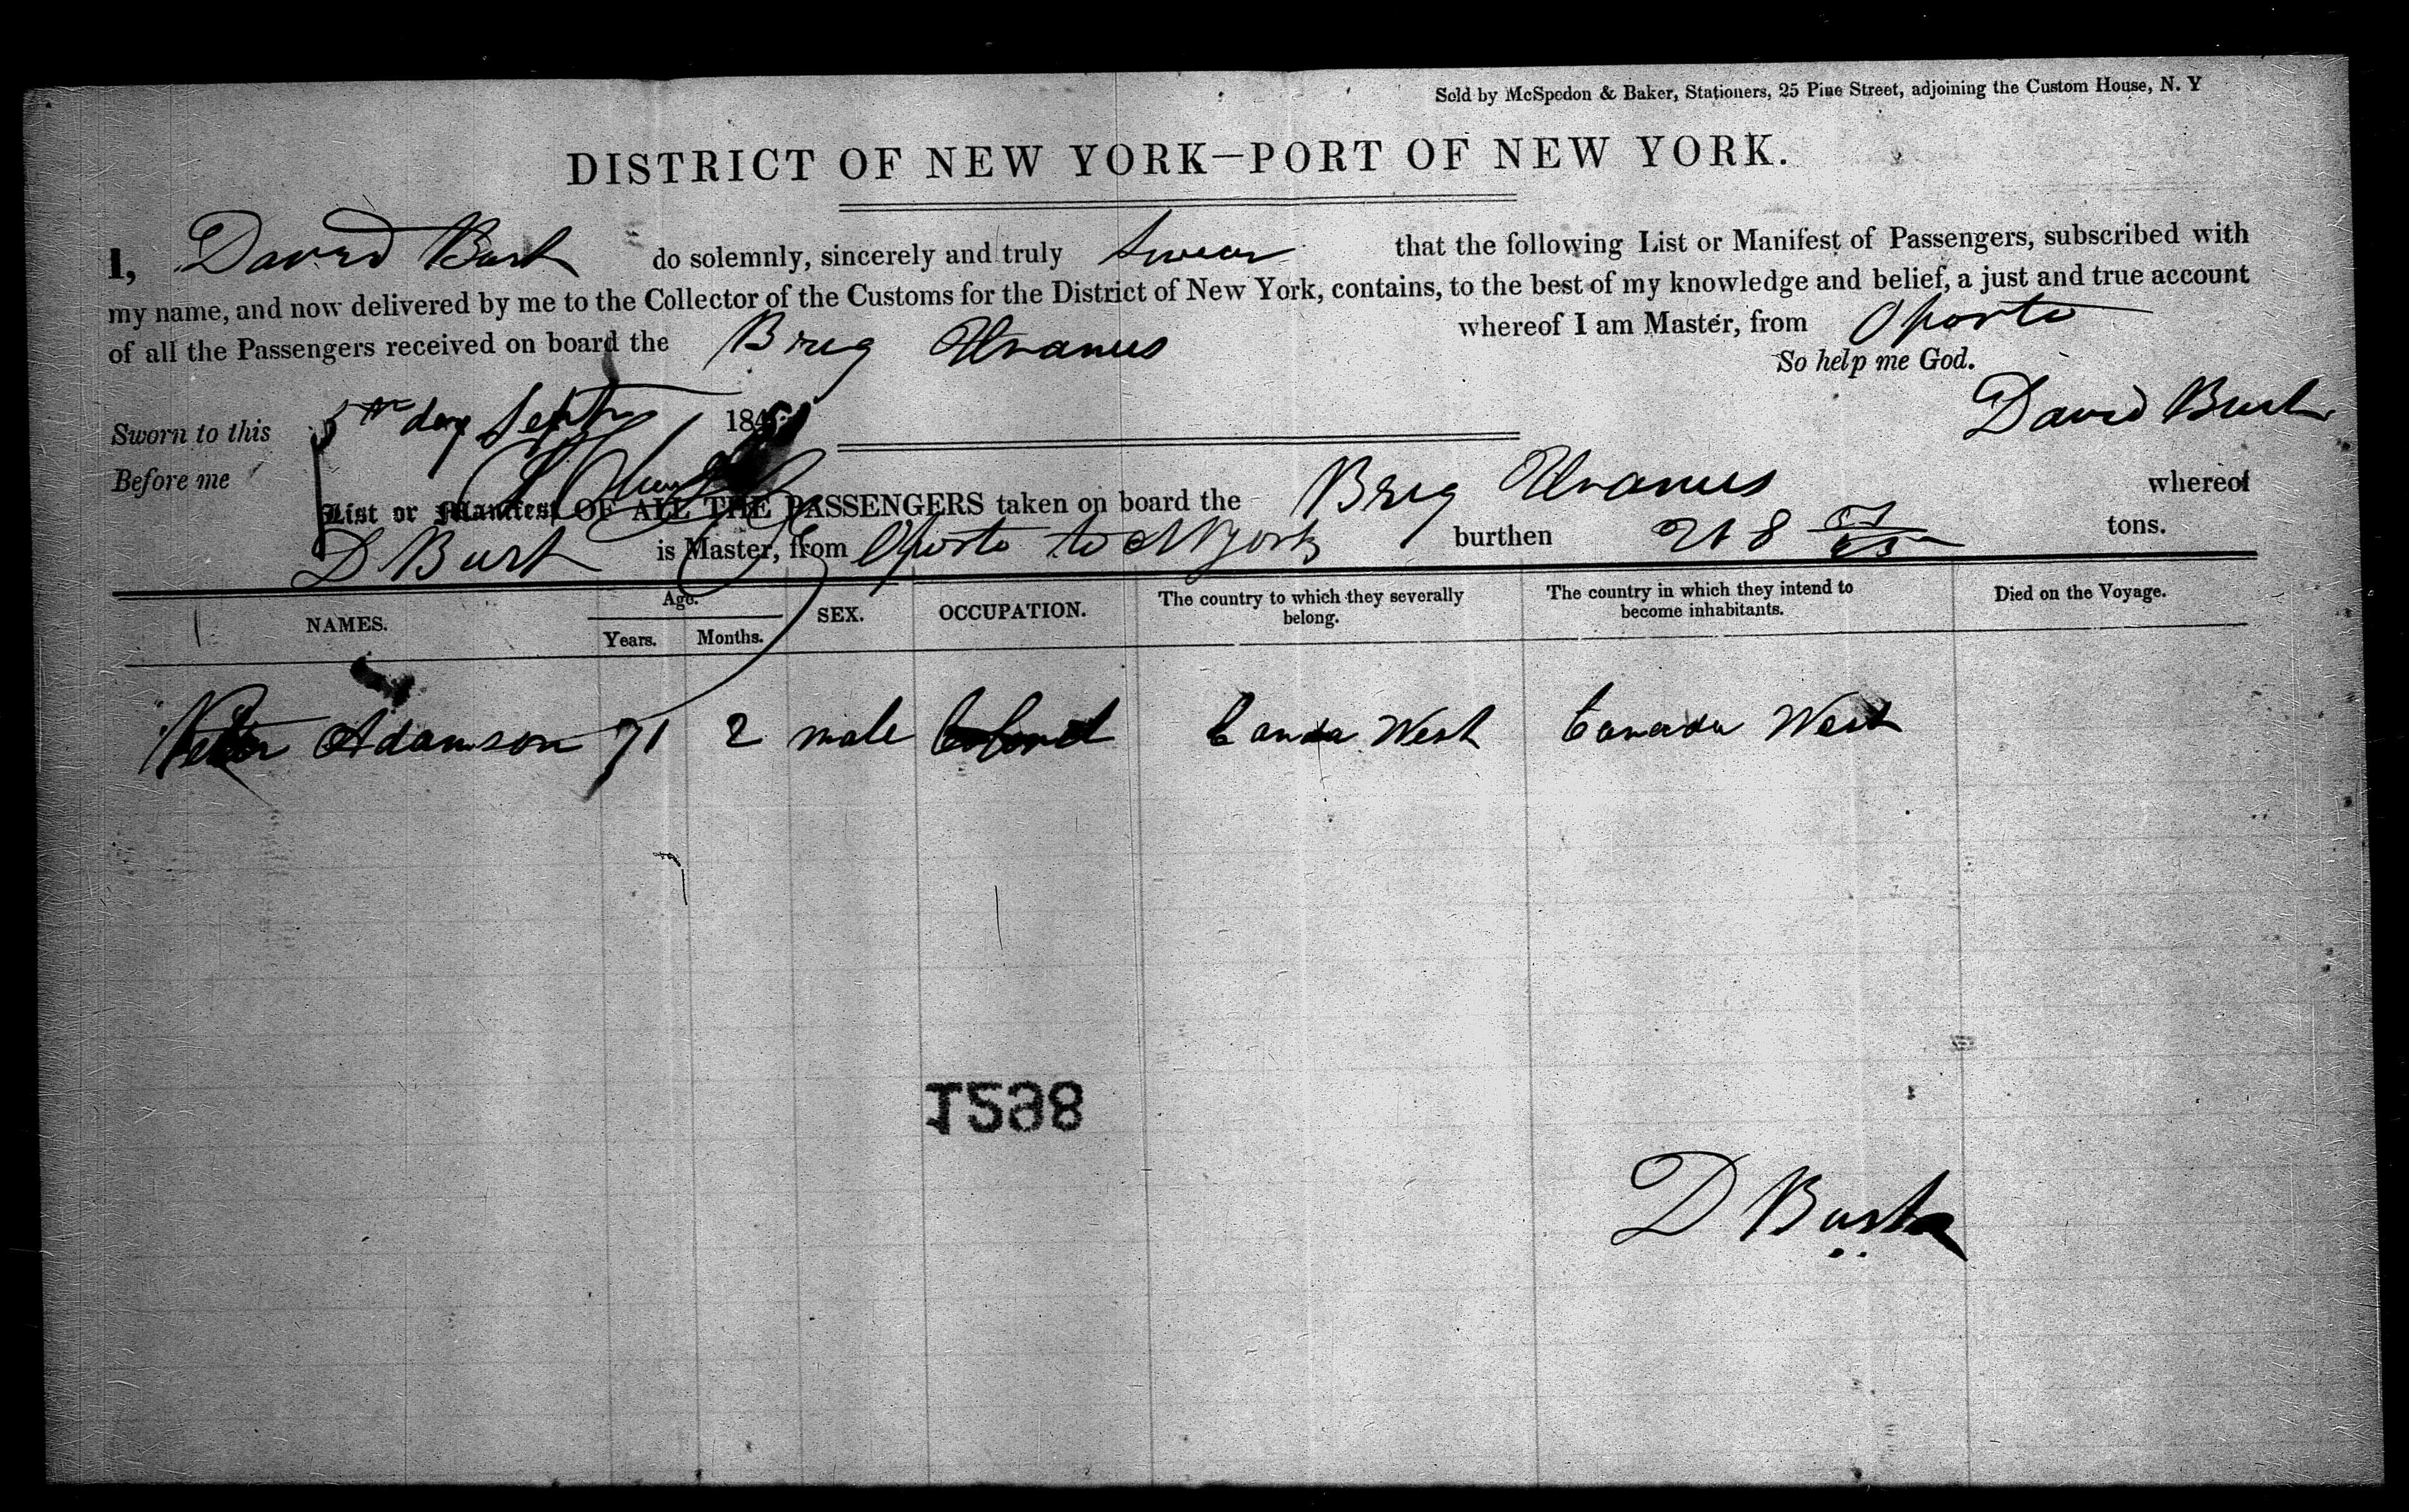 Sold by McSpedon & Baker, Stationers, 25 Pine Street, adjoining the Custom House, N. Y
DISTRICT OF NEW YORK—PORT OF NEW YORK.
I, David Burk do solemnly, sincerely and truly swear that the following List or Manifest of Passengers, subscribed with
my name, and now delivered by me to the Collector of the Customs for the District of New York, contains, to the best of my knowledge and belief, a just and true account
of all the Passengers received on board the Brig Uranus whereof I am Master, from Oporto
So help me God.
Sworn to this 5th day Septr 184 David Burk
Before me
List or Manifest OF ALL THE PASSENGERS taken on board the Brig Uranus whereof
D Burk is Master, from Oporto to N York burthen 218 tons.
NAMES. Age. Years. Months. SEX. OCCUPATION. The country to which they severally belong. The country in which they intend to become inhabitants. Died on the Voyage.
Peter Adamson 71 2 male Colonel Canda West Canada West
1598
D Burk